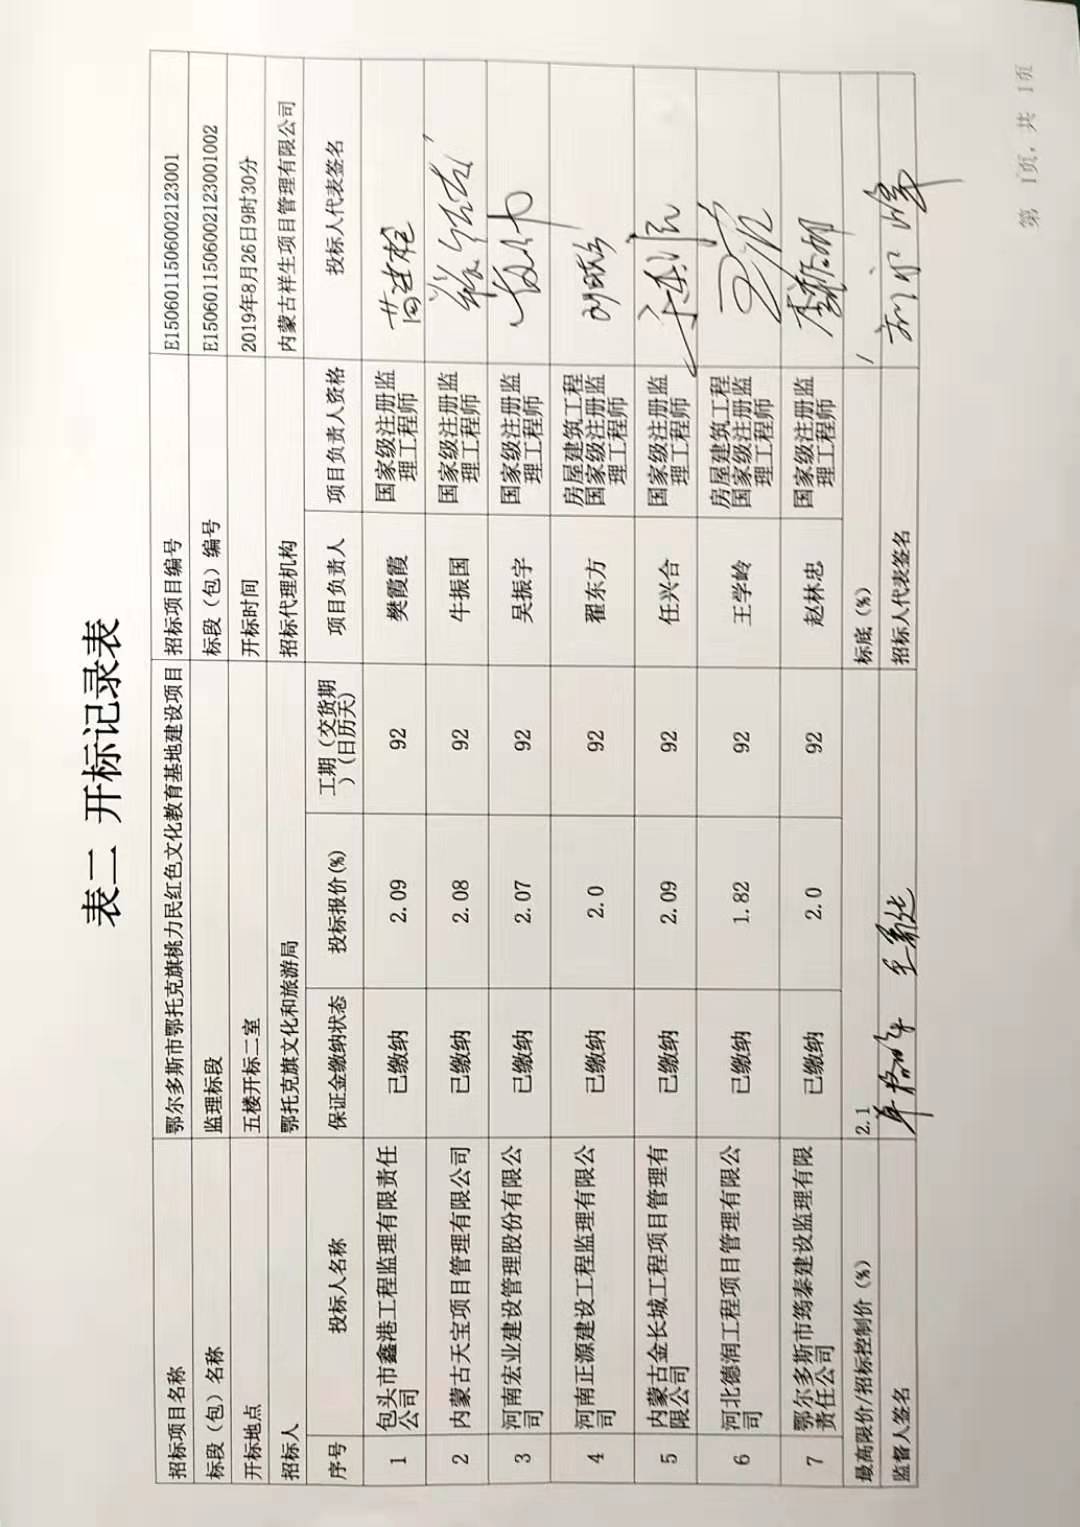 表二 开标记录表
招标项目名称 鄂尔多斯市鄂托克旗桃力民红色文化教育基地建设项目 招标项目编号 E1506011506002123001
标段（包）名称 监理标段 标段（包）编号 E1506011506002123001002
开标地点 五楼开标二室 开标时间 2019年8月26日9时30分
招标人 鄂托克旗文化和旅游局 招标代理机构 内蒙古祥生项目管理有限公司
序号 投标人名称 保证金缴纳状态 投标报价(%) 工期（交货期）(日历天) 项目负责人 项目负责人资格 投标人代表签名
1 包头市鑫港工程监理有限责任公司 已缴纳 2.09 92 樊霞霞 国家级注册监理工程师
2 内蒙古天宝项目管理有限公司 已缴纳 2.08 92 牛振国 国家级注册监理工程师
3 河南宏业建设管理股份有限公司 已缴纳 2.07 92 吴振宇 国家级注册监理工程师
4 河南正源建设工程监理有限公司 已缴纳 2.0 92 翟东方 房屋建筑工程国家级注册监理工程师
5 内蒙古金长城工程项目管理有限公司 已缴纳 2.09 92 任兴合 国家级注册监理工程师
6 河北德润工程项目管理有限公司 已缴纳 1.82 92 王学岭 房屋建筑工程国家级注册监理工程师
7 鄂尔多斯市筠泰建设监理有限责任公司 已缴纳 2.0 92 赵林忠 国家级注册监理工程师
最高限价/招标控制价（%） 2.1 标底（%） /
监督人签名 招标人代表签名
第 1页, 共 1页